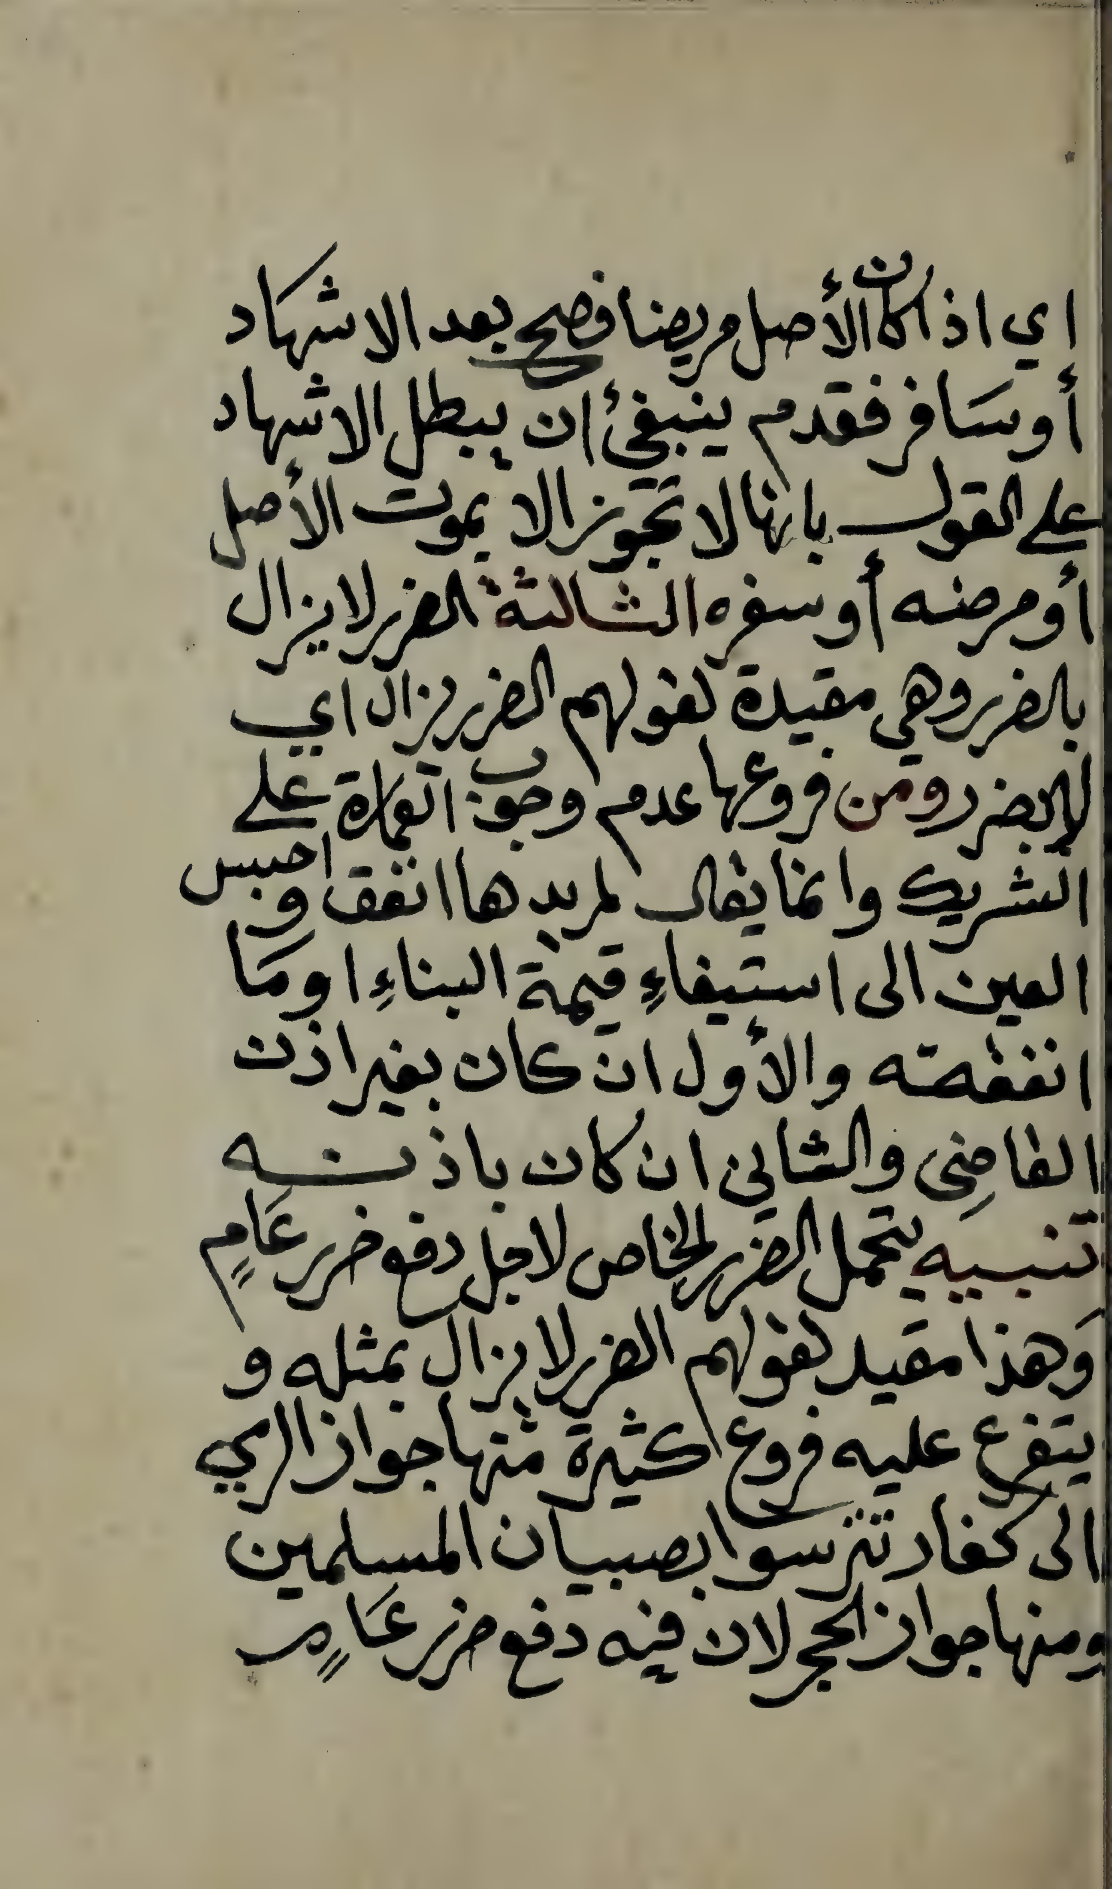 اي اذا كان الأصل مريضا فصح بعد الاشهاد
أو سَافر فقدم ينبغي أن يبطل الاشهاد
على القول بانها لا تجوز الا بموت الأصل
أو مرضه أو سفره الثالثة الضرر لا يزال
بالضرر وهي مقيدة لقولهم الضرر يزال اي
لا بضرر ومن فروعها عدم وجوب العمارة على
الشريك وانما يقال لمريدها انفق واحبس
العين الى استيفاءِ قيمة البناءِ او مَا
انفقته والأول ان كان بغير اذن
القاضِى والثاني ان كان باذنه
تنبيه يتحمل الضرر الخاص لاجل دفع ضرر عَامٍ
وَهذا مقيد لقولهم الضرر لا يزال بمثله و
يتفرع عليه فروع كثيرة منها جواز الرمي
الى كفار تترسوا بصبيان المسلمين
ومنها جواز الحجر لان فيه دفع ضرر عَامٍ